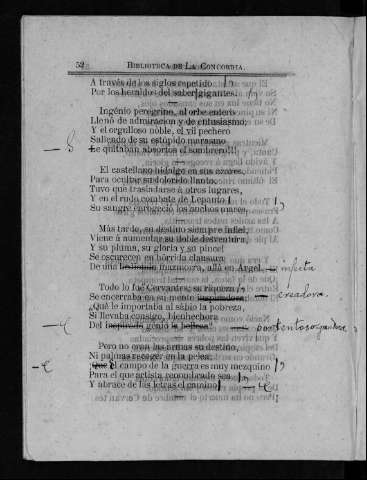 52
BIBLIOTECA DE LA CONCORDIA.
A través de los siglos repetido
Por los heraldos del saber gigantes.
Ingénio peregrino, al orbe entero
Llenó de admiracion y de entusiasmo;
Y el orgulloso noble, el vil pechero
Saliendo de su estúpido marasmo
Le quitaban absortos el sombrero!!!
El castellano hidalgo en sus azares
Para ocultar su dolorido llanto,
Tuvo que trasladarse á otros lugares,
Y en el rudo combate de Lepanto
Su sangre enrogeció los anchos mares.
Más tarde, su destino siempre infiel,
Viene á aumentar su doble desventura;
Y su pluma, su gloria y su pincel
Se oscurecen en hórrida clausura
De una mazmorra, allá en Argel. infecta
Todo lo fué Cervantes; su riqueza
Se encerraba en su mente inspiradora creadora.
¿Qué le importaba al sábio la pobreza,
Si llevaba consigo, bienhechora
Del inspirado génio la belleza?
Pero no eran las armas su destino,
Ni palmas recoger en la pelea;
Que el campo de la guerra es muy mezquino
Para el que artista renombrado sea
Y abrace de las letras el camino